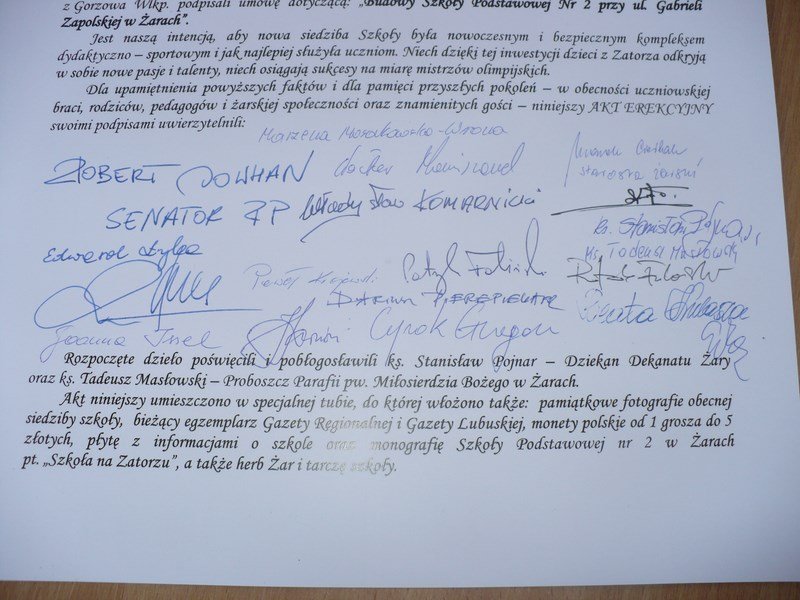 z Gorzowa Wlkp. podpisali umowę dotyczącą: „Budowy Szkoły Podstawowej Nr 2 przy ul. Gabrieli
Zapolskiej w Żarach”.
Jest naszą intencją, aby nowa siedziba Szkoły była nowoczesnym i bezpiecznym kompleksem
dydaktyczno – sportowym i jak najlepiej służyła uczniom. Niech dzięki tej inwestycji dzieci z Zatorza odkryją
w sobie nowe pasje i talenty, niech osiągają sukcesy na miarę mistrzów olimpijskich.
Dla upamiętnienia powyższych faktów i dla pamięci przyszłych pokoleń – w obecności uczniowskiej
braci, rodziców, pedagogów i żarskiej społeczności oraz znamienitych gości – niniejszy AKT EREKCYJNY
swoimi podpisami uwierzytelnili:
Marzena
ROBERT DOWHAN
starosta żarski
SENATOR RP Władysław KOMARNICKI
ks. Stanisław Pojnar
Edward
ks. Tadeusz Masłowski
Paweł
DARIUSZ
Beata
Joanna
Rozpoczęte dzieło poświęcili i pobłogosławili ks. Stanisław Pojnar – Dziekan Dekanatu Żary
oraz ks. Tadeusz Masłowski – Proboszcz Parafii pw. Miłosierdzia Bożego w Żarach.
Akt niniejszy umieszczono w specjalnej tubie, do której włożono także: pamiątkowe fotografie obecnej
siedziby szkoły, bieżący egzemplarz Gazety Regionalnej i Gazety Lubuskiej, monety polskie od 1 grosza do 5
złotych, płytę z informacjami o szkole oraz monografię Szkoły Podstawowej nr 2 w Żarach
pt. „Szkoła na Zatorzu”, a także herb Żar i tarczę szkoły.